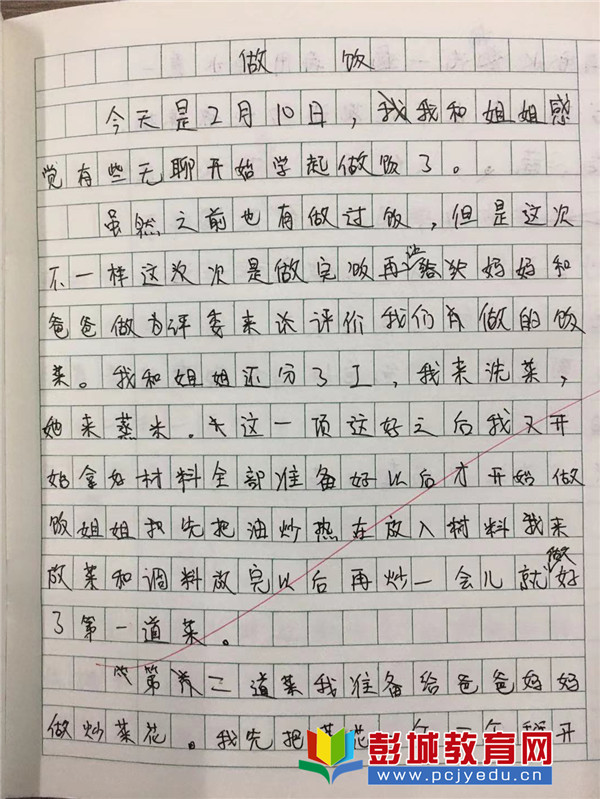 做饭
今天是2月10日，我和姐姐感
觉有些无聊开始学起做饭了。
虽然之前也有做过饭，但是这次
不一样这次是做完饭再让妈妈和
爸爸做为评委来评价我们做的饭
菜。我和姐姐还分了工，我来洗菜，
她来蒸米。这一项这好之后我又开
始拿好材料全部准备好以后才开始做
饭姐姐先把油炒热在放入材料我来
放菜和调料放完以后再炒一会儿就做好
了第一道菜。
第二道菜我准备给爸爸妈妈
做炒菜花。我先把菜花一个一个掰开
彭城教育网
www.pcjyedu.cn